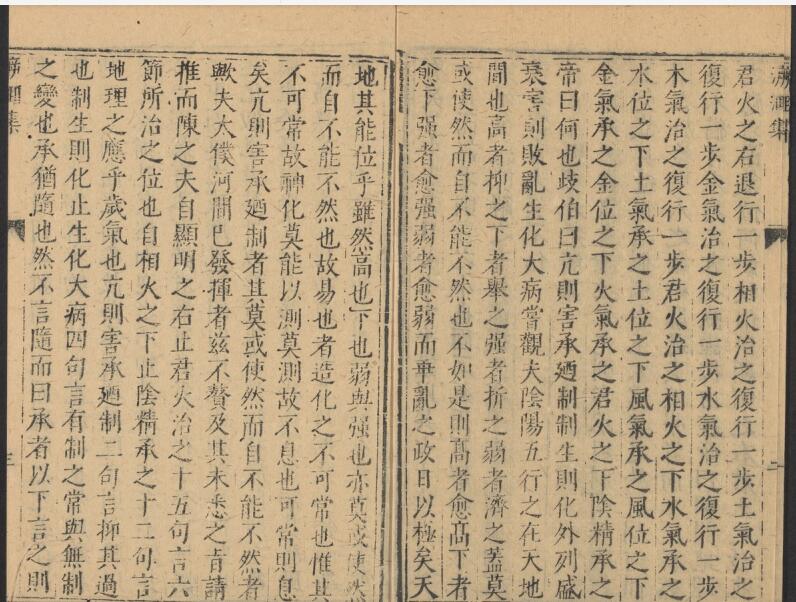 君火之右退行一步相火治之復行一步土氣治之
復行一步金氣治之復行一步水氣治之復行一步
木氣治之復行一步君火治之相火之下水氣承之
水位之下土氣承之土位之下風氣承之風位之下
金氣承之金位之下火氣承之君火之下陰精承之
帝曰何也歧伯曰亢則害承廼制制生則化外列盛
衰害則敗亂生化大病嘗觀夫陰陽五行之在天地
間也高者抑之下者舉之强者折之弱者濟之蓋莫
或使然而自不能不然也不如是則髙者愈髙下者
愈下强者愈强弱者愈弱而乖亂之政日以極矣天
地其能位乎雖然高也下也弱與强也亦莫或使然
而自不能不然也故易也者造化之不可常也惟其
不可常故神化莫能以測莫測故不息也可常則息
矣亢則害承廼制者其莫或使然而自不能不然者
歟夫太僕河間巳發揮者兹不贅及其未悉之旨請
推而陳之夫自顯明之右止君火治之十五句言六
節所治之位也自相火之下止陰精承之十二句言
地理之應乎歲氣也亢則害承廼制二句言抑其過
也制生則化止生化大病四句言有制之常與無制
之變也承猶隨也然不言隨而曰承者以下言之則